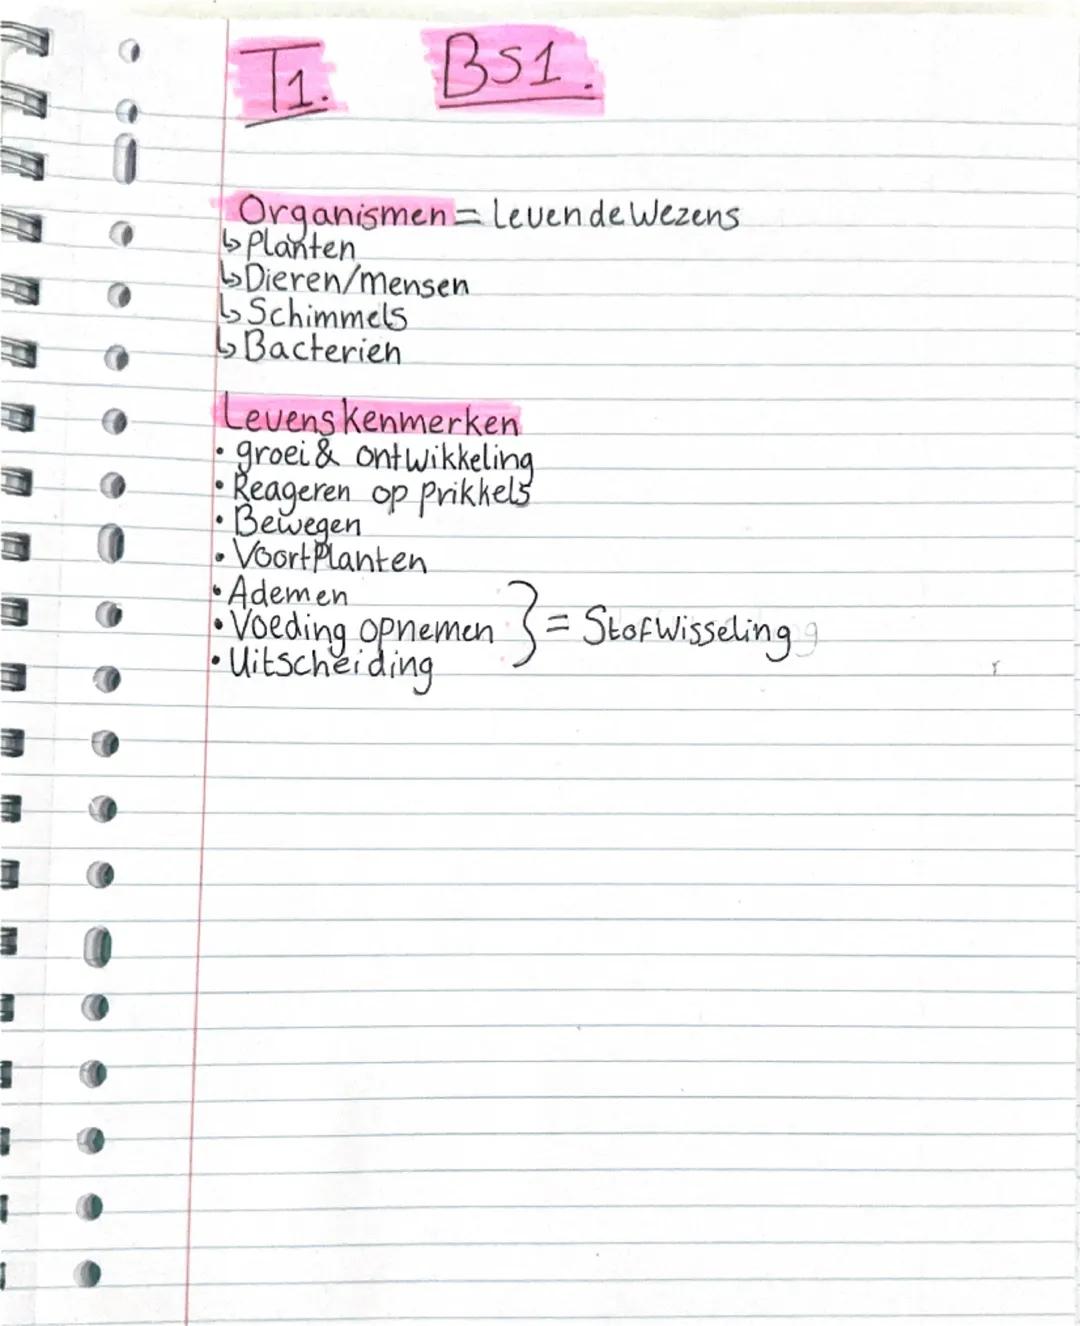 T1. BS1.
Organismen = levende wezens
↳ Planten
↳ Dieren/mensen
↳ Schimmels
↳ Bacterien
Levenskenmerken
• groei & ontwikkeling
• Reageren op prikkels
• Bewegen
• Voortplanten
• Ademen
• Voeding opnemen } = Stofwisseling
• Uitscheiding